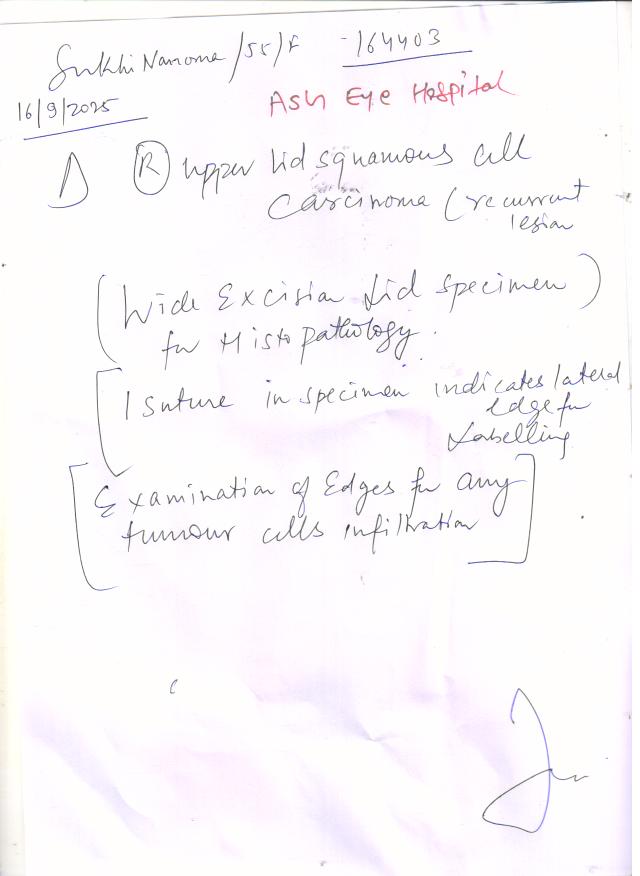 Sukhi Narroma /55/F -164403
16/9/2025
Ash Eye Hospital
Δ (R) upper lid squamous cell
carcinoma (recurrent
lesion
(Wide Excision Lid specimen)
for Histopathology.
[1 Suture in specimen indicates lateral
Edge for
Labelling
[Examination of Edges for any
tumour cells infiltration]